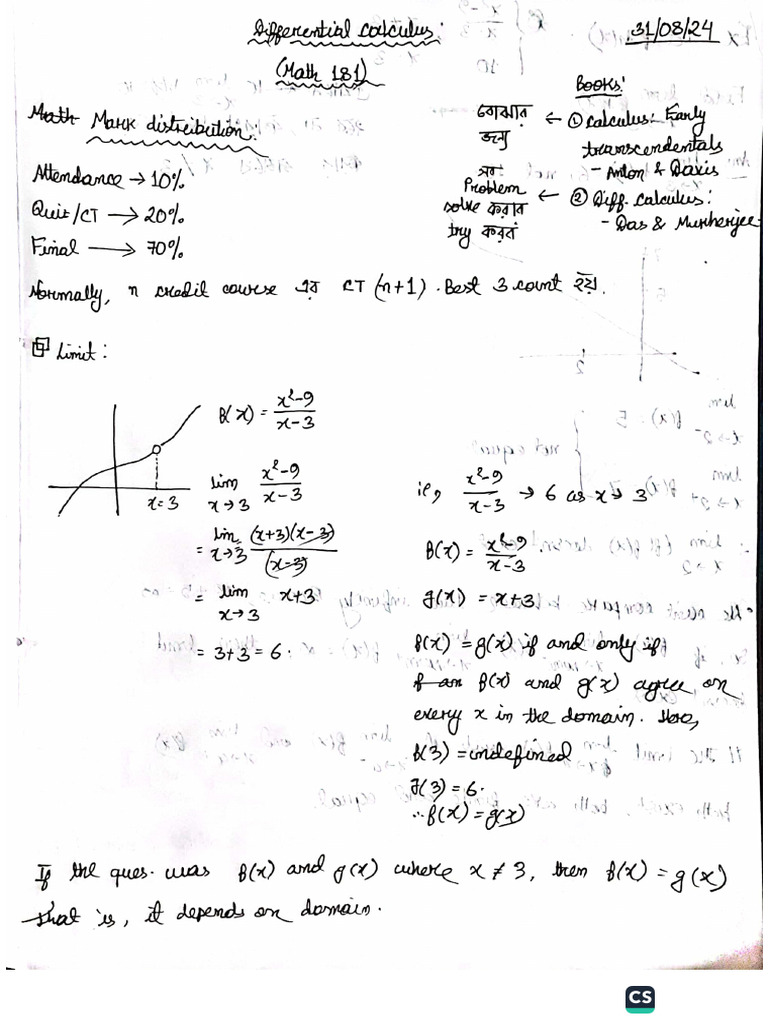 Differential calculus:
31/08/24
(Math 181)
Books:
Math Mark distribution:
Attendance → 10%
Quiz/CT → 20%
Final → 70%
বোঝার জন্য ← ① Calculus: Early
transcendentals
- Anton & Davis
Problem
solve করার ← ② Diff. calculus:
try করব
- Das & Mukherjee
Normally, n credit course এর CT (n+1). Best 3 count হয়.
Limit:
f(x) = x²-9 / x-3
x=3
lim x→3 x²-9 / x-3
= lim x→3 (x+3)(x-3) / (x-3)
= lim x→3 x+3
= 3+3 = 6.
ie, x²-9 / x-3 → 6 as x → 3
f(x) = x²-9 / x-3
g(x) = x+3
f(x) = g(x) if and only if
f(x) and g(x) agree on
every x in the domain. Here,
f(3) = undefined
g(3) = 6.
∴ f(x) = g(x)
If the ques. was f(x) and g(x) where x ≠ 3, then f(x) = g(x)
that is, it depends on domain.
CS